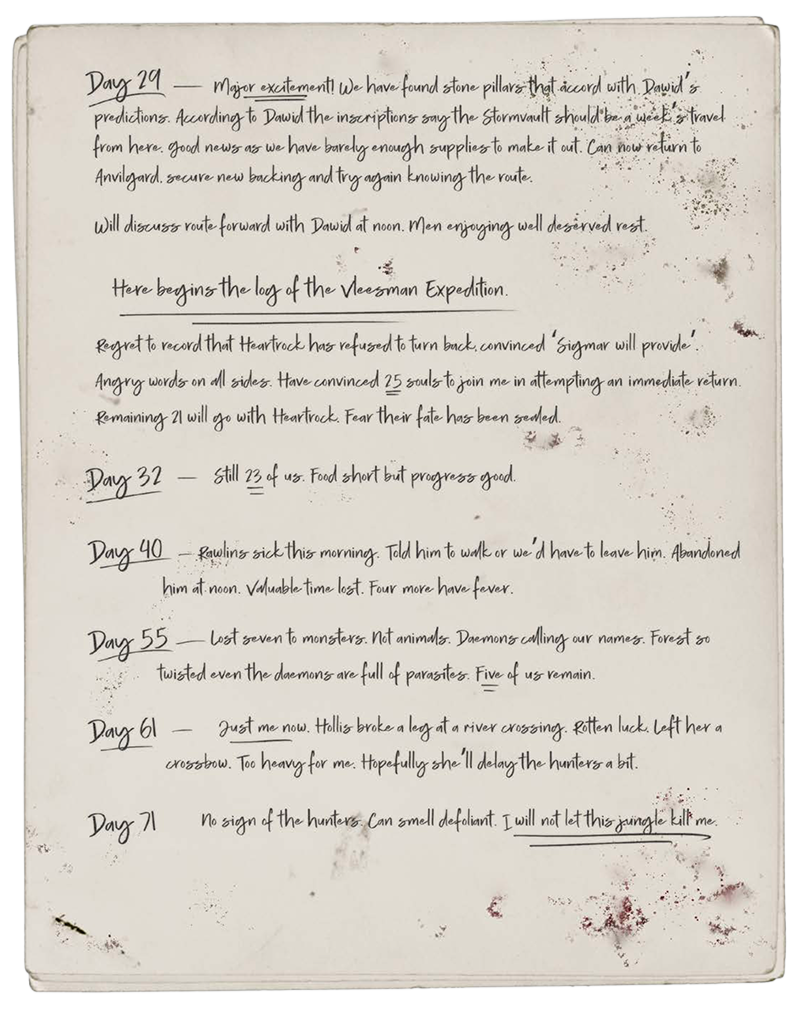 Day 29 — Major excitement! We have found stone pillars that accord with Dawid's
predictions. According to Dawid the inscriptions say the Stormvault should be a week's travel
from here. good news as we have barely enough supplies to make it out. Can now return to
Anvilgard, secure new backing and try again knowing the route.
Will discuss route forward with Dawid at noon. Men enjoying well deserved rest.
Here begins the log of the Vleesman Expedition.
Regret to record that Heartrock has refused to turn back, convinced 'Sigmar will provide'.
Angry words on all sides. Have convinced 25 souls to join me in attempting an immediate return.
Remaining 21 will go with Heartrock. Fear their fate has been sealed.
Day 32 — Still 23 of us. Food short but progress good.
Day 40 — Rawlins sick this morning. Told him to walk or we'd have to leave him. Abandoned
him at noon. Valuable time lost. Four more have fever.
Day 55 — Lost seven to monsters. Not animals. Daemons calling our names. Forest so
twisted even the daemons are full of parasites. Five of us remain.
Day 61 — Just me now. Hollis broke a leg at a river crossing. Rotten luck. Left her a
crossbow. Too heavy for me. Hopefully she'll delay the hunters a bit.
Day 71 No sign of the hunters. Can smell defoliant. I will not let this jungle kill me.